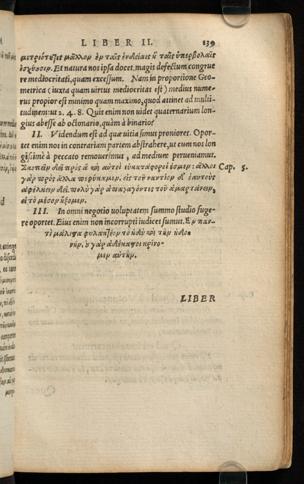 LIBER II. 139
μετριότητι μᾶλλον ἐν ταῖς ἐνδείαις ἢ ταῖς ὑπερβολαῖς
Et natura nos ipsa docet, magis defectum congrue
re mediocritati, quam excessum. Nam in proportione Geo-
metrica (iuxta quam virtus mediocritas est) medius nume
rus propior est minimo quam maximo, quod attinet ad multi-
tudinem: ut 2. 4. 8. Quis enim non videt quaternarium lon-
gius abesse ab octonario, quàm à binario?
II. Videndum est ad quæ vitia simus proniores. Opor-
tet enim nos in contrariam partem abstrahere, ut cum nos lon
gissimè à peccato remouerimus, ad medium perueniamus.
Σκοπεῖν δεῖ πρὸς ἃ καὶ αὐτοὶ εὐκατάφοροί ἐσμεν: ἄλλοι Cap. 5.
γὰρ πρὸς ἄλλα πεφύκαμεν. εἰς τοὐναντίον δὲ ἑαυτοὺς
ἀφέλκειν δεῖ. πολὺ γὰρ ἀπαγαγόντες τοῦ ἁμαρτάνειν,
εἰς τὸ μέσον ἥξομεν.
III. In omni negotio voluptatem summo studio fuge-
re oportet. Eius enim non incorrupti iudices sumus. Ἐν παν-
τὶ μάλιστα φυλακτέον τὸ ἡδὺ καὶ τὴν ἡδο-
νήν. οὐ γὰρ ἀδέκαστοι κρίνο-
μεν αὐτήν.
LIBER